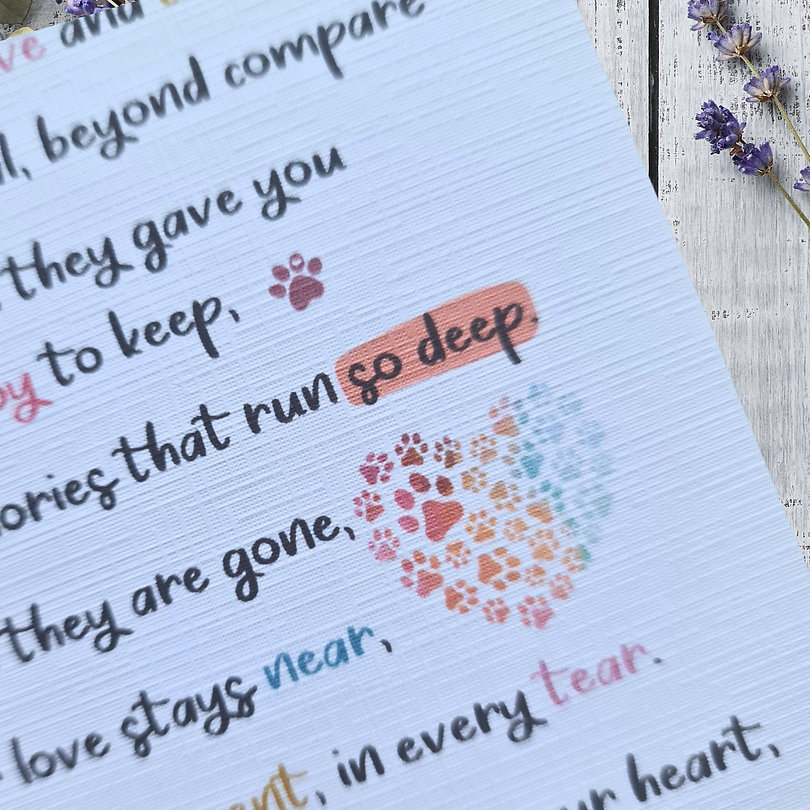 and
beyond compare
they gave you
to keep,
that run so deep.
they are gone,
love stays near,
, in every tear.
heart,